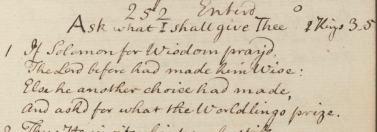 252 Enterd
Ask what I shall give Thee 1 Kings 3.5
1 If Solomon for Wisdom pray'd,
The Lord before had made him Wise:
Else he another choice had made,
And ask'd for what the Worldlings prize.